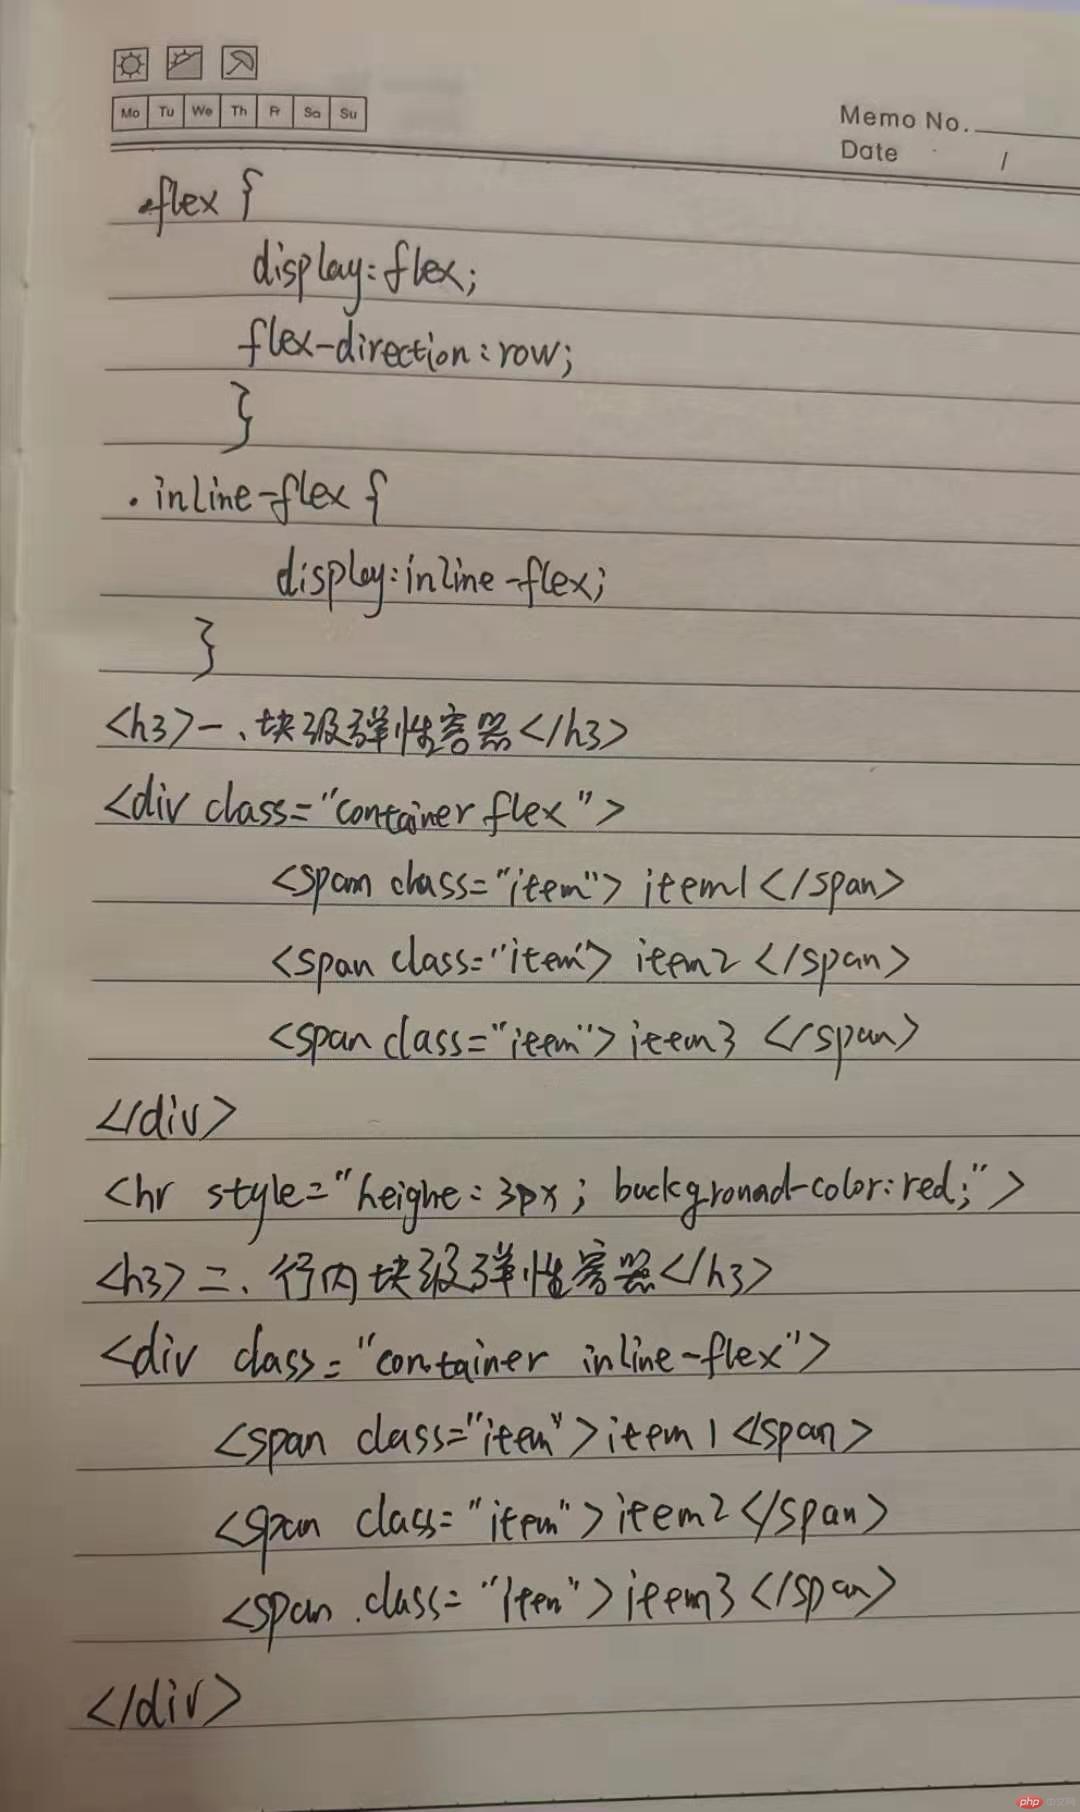 Mo Tu We Th Fr Sa Su
Memo No.
Date /
.flex {
display:flex;
flex-direction:row;
}
.inline-flex {
display:inline-flex;
}
<h3>一、块级弹性容器</h3>
<div class="container flex">
<span class="item"> item1</span>
<span class="item"> item2 </span>
<span class="item"> item3 </span>
</div>
<hr style="height: 3px; background-color:red;">
<h3>二、行内块级弹性容器</h3>
<div class="container inline-flex">
<span class="item">item1</span>
<span class="item">item2</span>
<span class="item">item3</span>
</div>
php 中文网